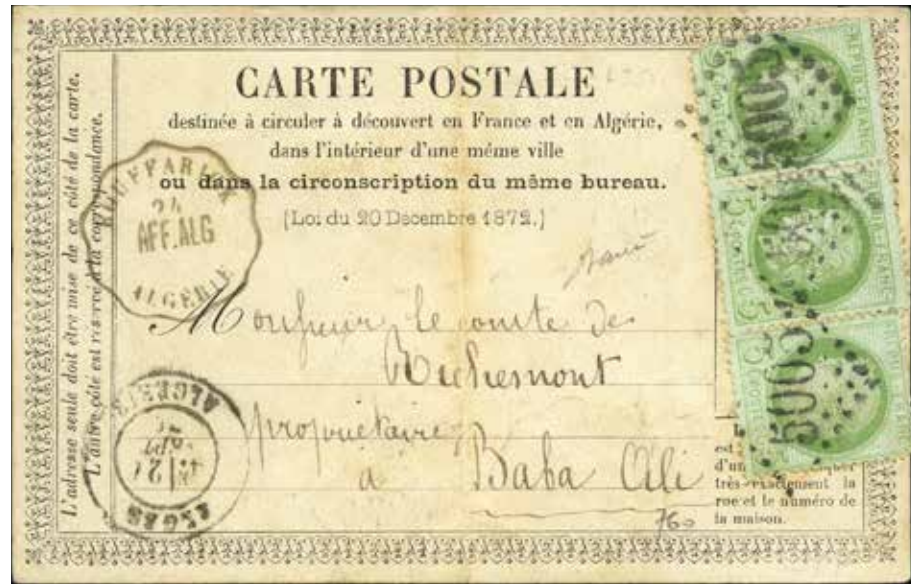 CARTE POSTALE
destinée à circuler à découvert en France et en Algérie,
dans l'intérieur d'une même ville
ou dans la circonscription du même bureau.
[Loi du 20 Décembre 1872.]
L'adresse seule doit être mise de ce côté de la carte.
L'autre côté est réservé à la correspondance.
24
AFF.ALG
ALGERIE
Monsieur le comte de
Richemont
propriétaire
à Baba Ali
760
ALGER
ALGERIE
21
5005
5005
très-exactement la
rue et le numéro de
la maison.